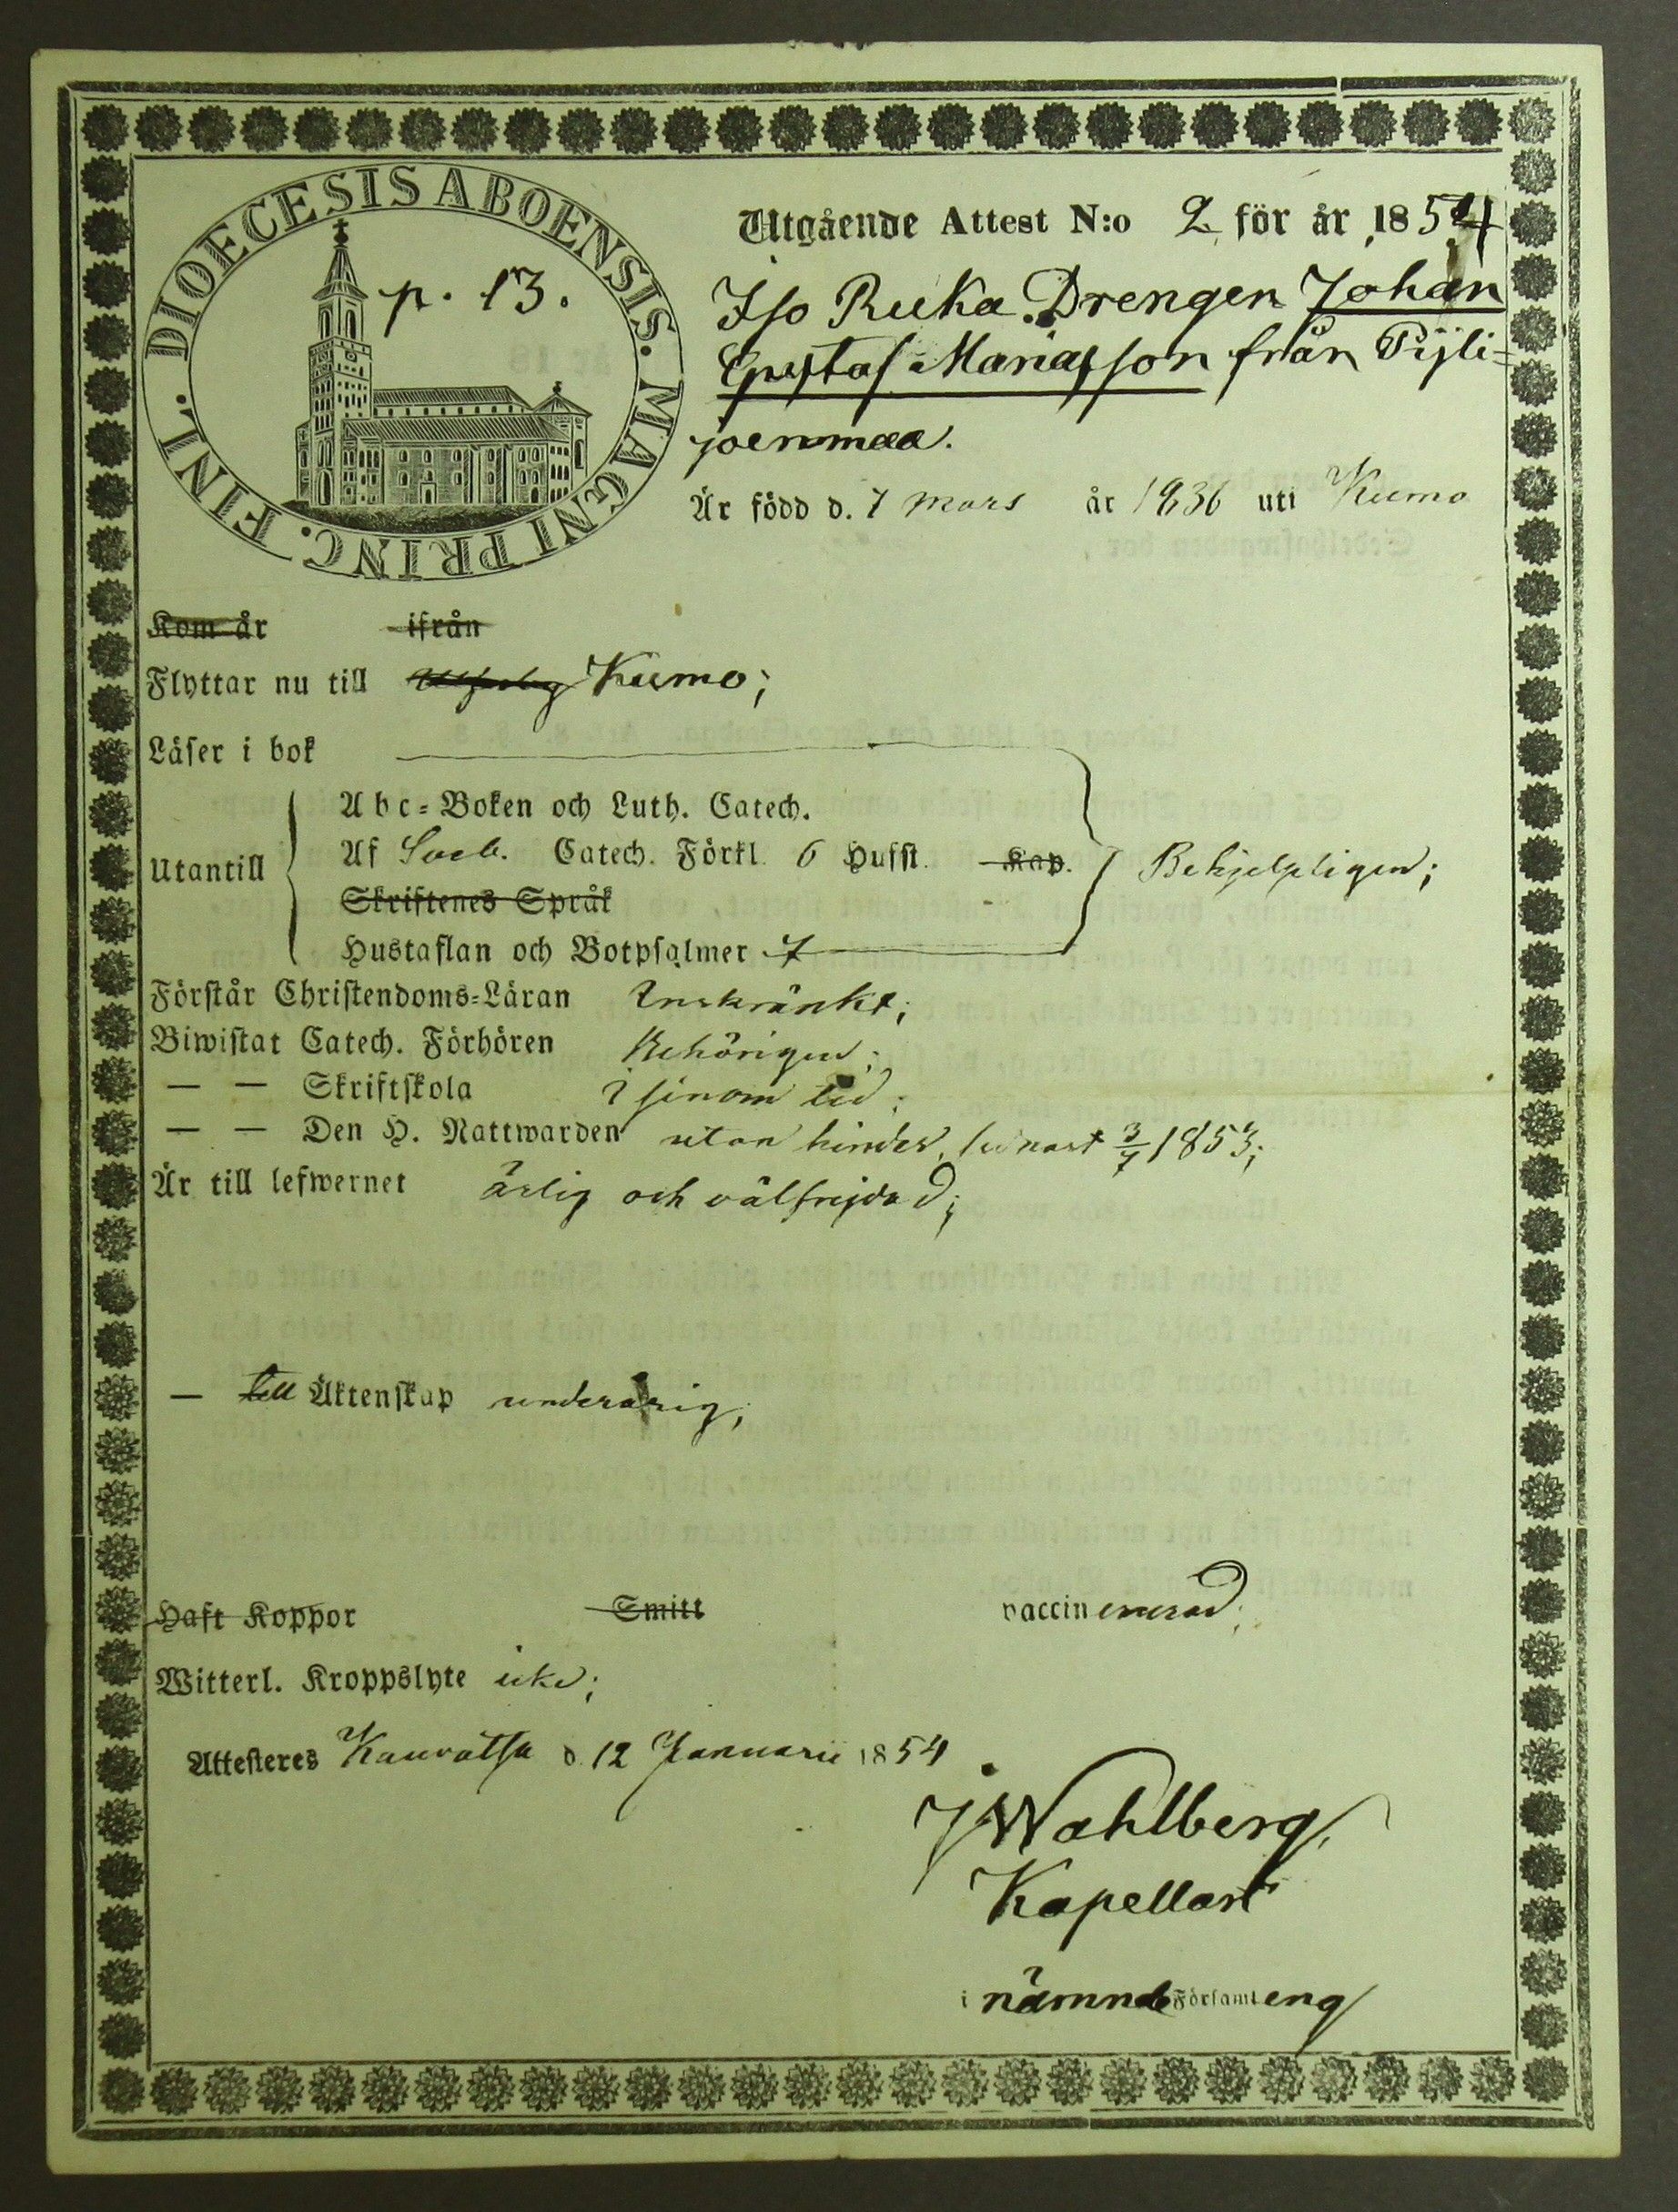 DIOECESIS ABOENSIS. MAGNI PRINC. FINL.
p. 13.
Utgående Attest N:o 2 för år 1854
Iso Ruka Drengen Johan
Gustaf Mariasson från Pijli=
joenmaa.
Är född d. 7 Mars år 1836 uti Kumo
Kom år ifrån
Flyttar nu till Kumo;
Läser i bok
Abc=Boken och Luth. Catech.
Utantill Af Sveb. Catech. Förkl. 6 Hufst. Kap. Behjelpligen;
Skriftenes Språk
Hustaflan och Botpsalmer 7
Förstår Christendoms=Läran Inskränkt;
Biwistat Catech. Förhören Behörigen;
— — Skriftskola i sinom tid;
— — Den H. Nattwarden utan hinder, sednast 3/7 1853;
Är till lefwernet ärlig och välfrejdad;
— till Äktenskap underårig;
Haft Koppor Smitt vaccinerad;
Witterl. Kroppslyte icke;
Attesteres Kauvatsa d. 12 Januarii 1854
J Wahlberg,
Kapellan
i nämnde Församleng